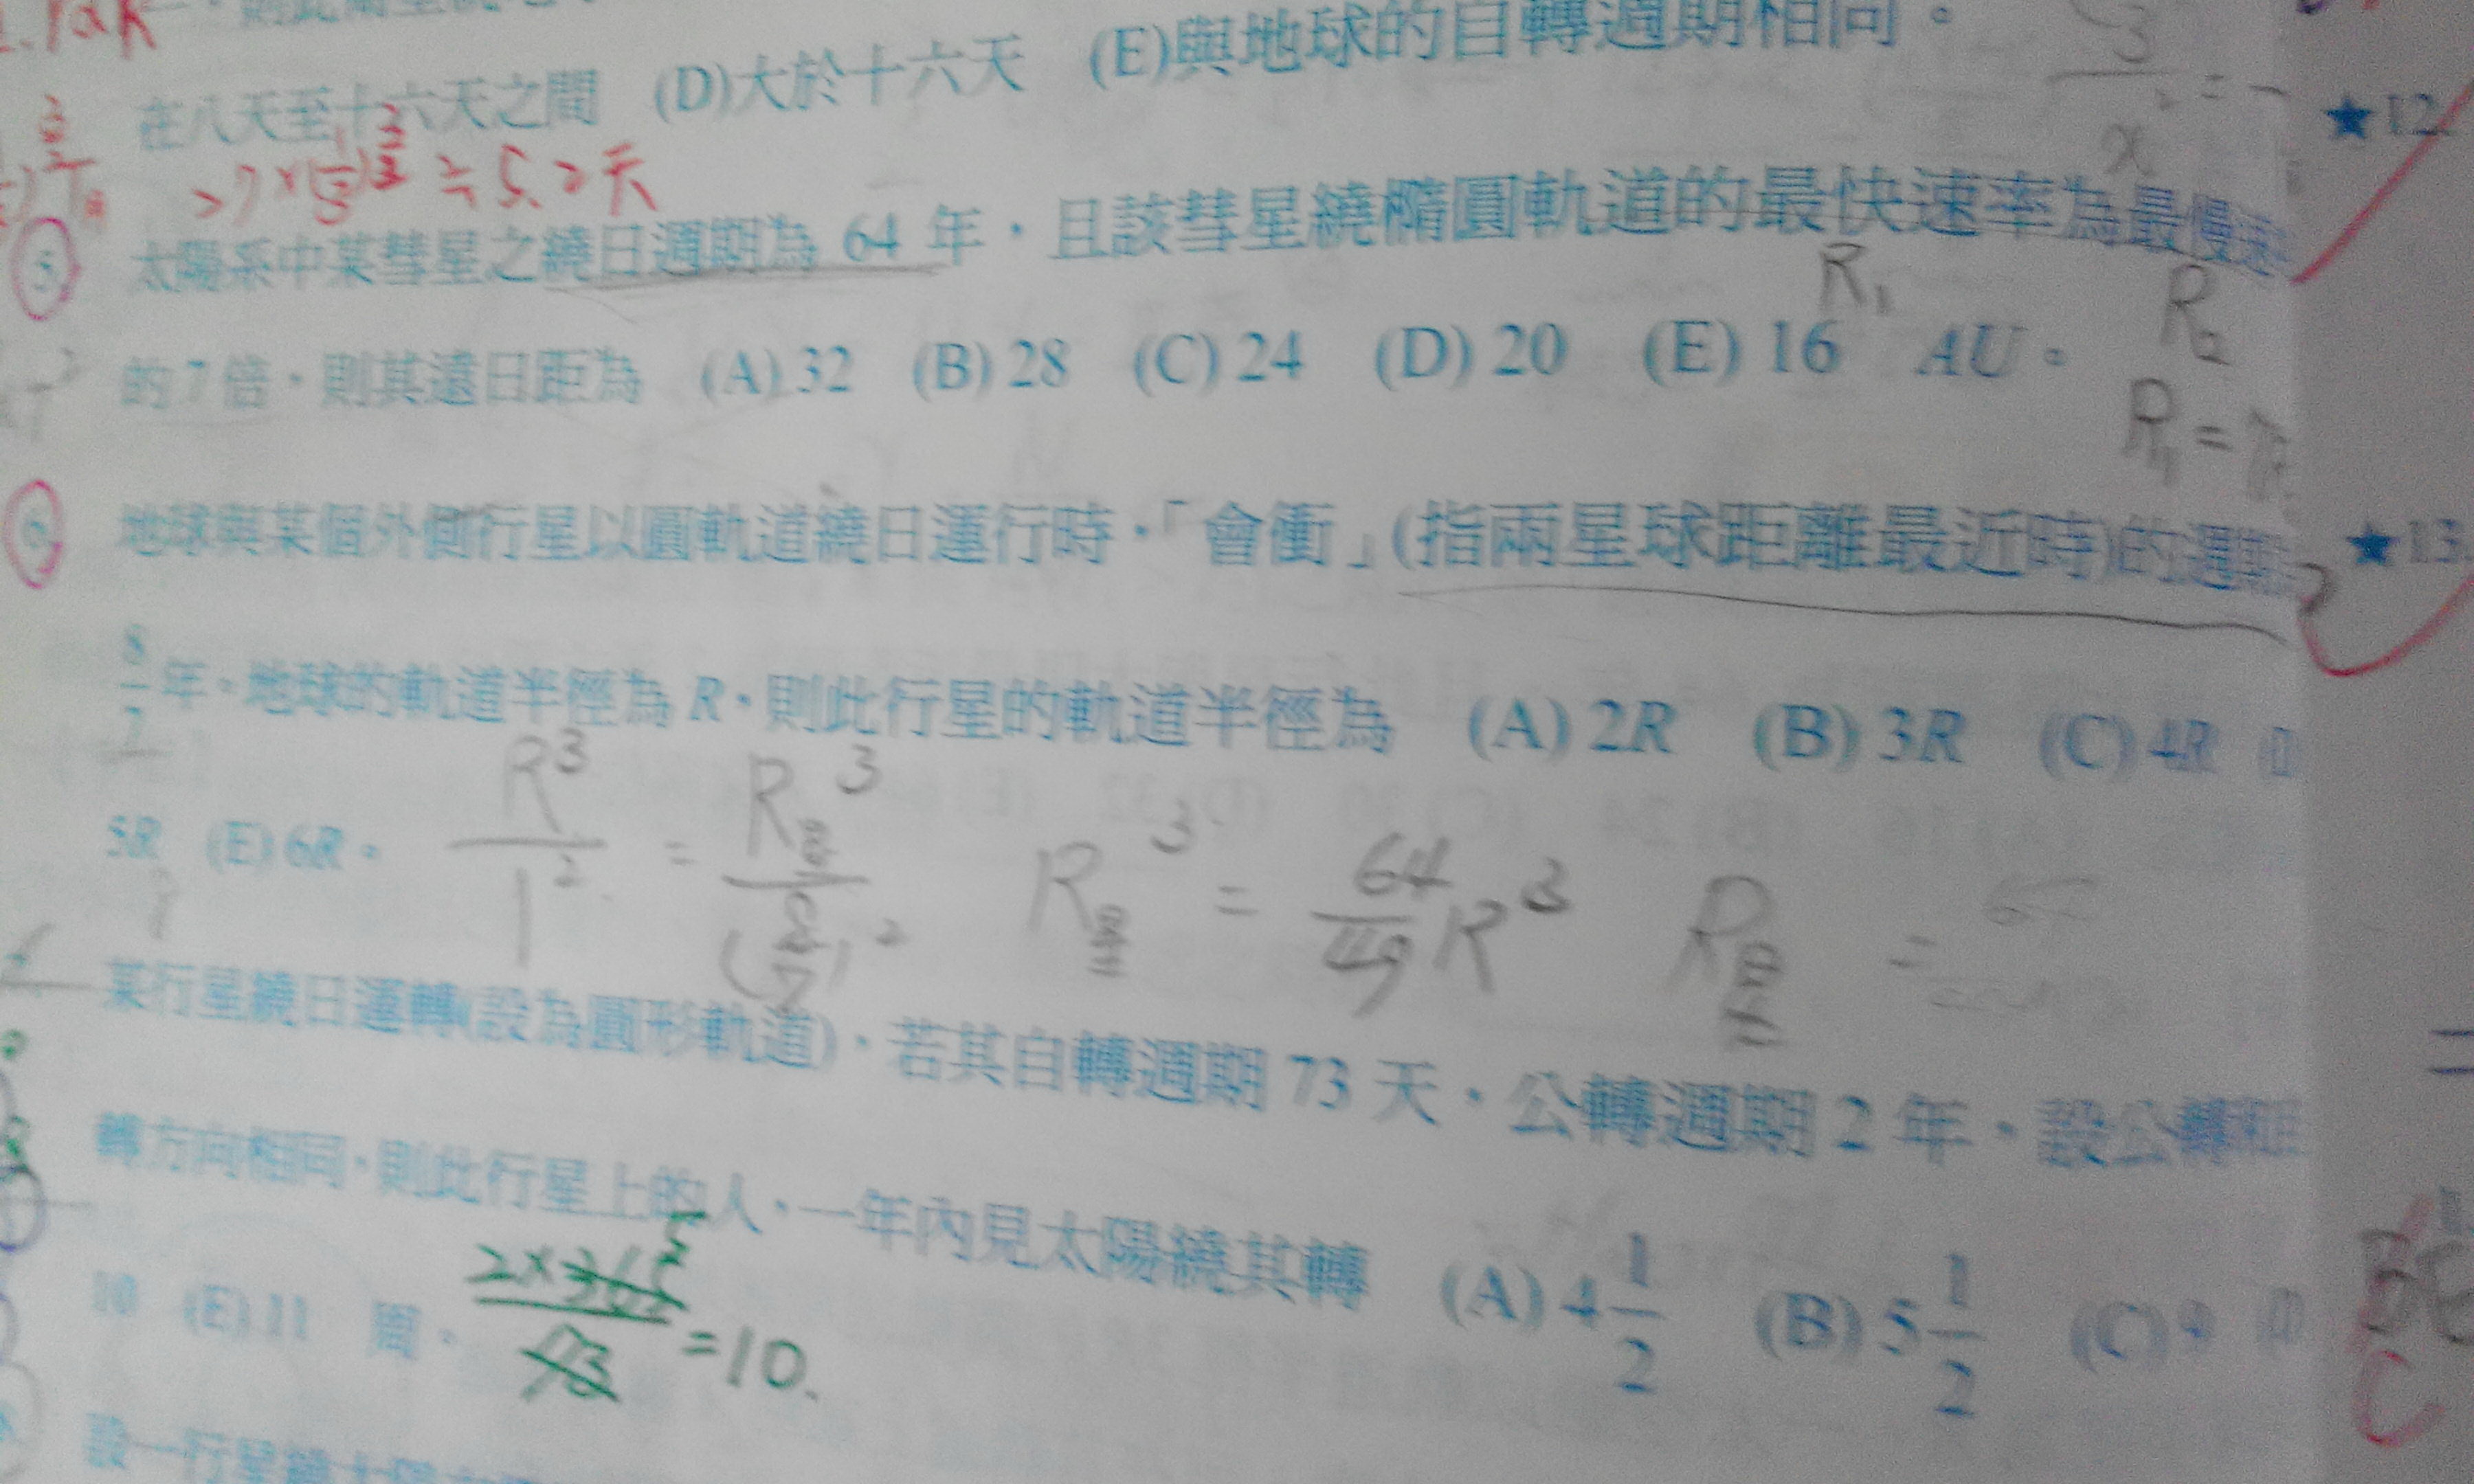 在八天至十六天之間 (D)大於十六天 (E)與地球的自轉週期相同。
≒5.2天
太陽系中某彗星之繞日週期為 64 年,且該彗星繞橢圓軌道的最快速率為最慢速
R₁ R₂
的 7 倍,則其遠日距為 (A) 32 (B) 28 (C) 24 (D) 20 (E) 16 AU。
地球與某個外側行星以圓軌道繞日運行時,「會衝」(指兩星球距離最近時)的週期
8/7 年,地球的軌道半徑為 R,則此行星的軌道半徑為 (A) 2R (B) 3R (C) 4R
5R (E) 6R。
R³/1² = R星³/(8/7)² R星³ = 64/49 R³ R星 =
某行星繞日運轉(設為圓形軌道),若其自轉週期 73 天,公轉週期 2 年,設公轉和自
轉方向相同,則此行星上的人,一年內見太陽繞其轉 (A) 4 1/2 (B) 5 1/2 (C) 9
10 (E) 11 周。
2×365/73 = 10.
設一行星繞太陽
★12.
★13.